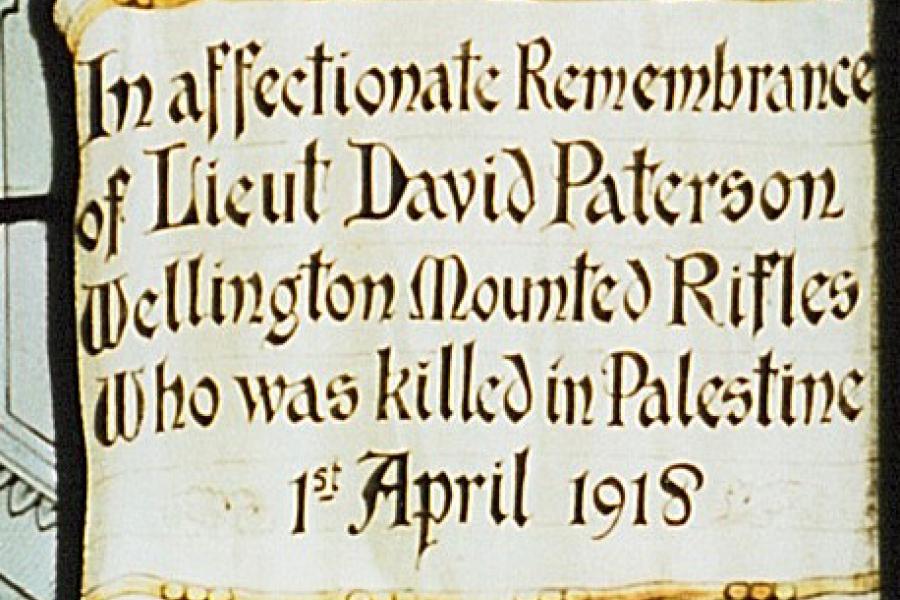 In affectionate Remembrance
of Lieut David Paterson
Wellington Mounted Rifles
Who was killed in Palestine
1st April 1918